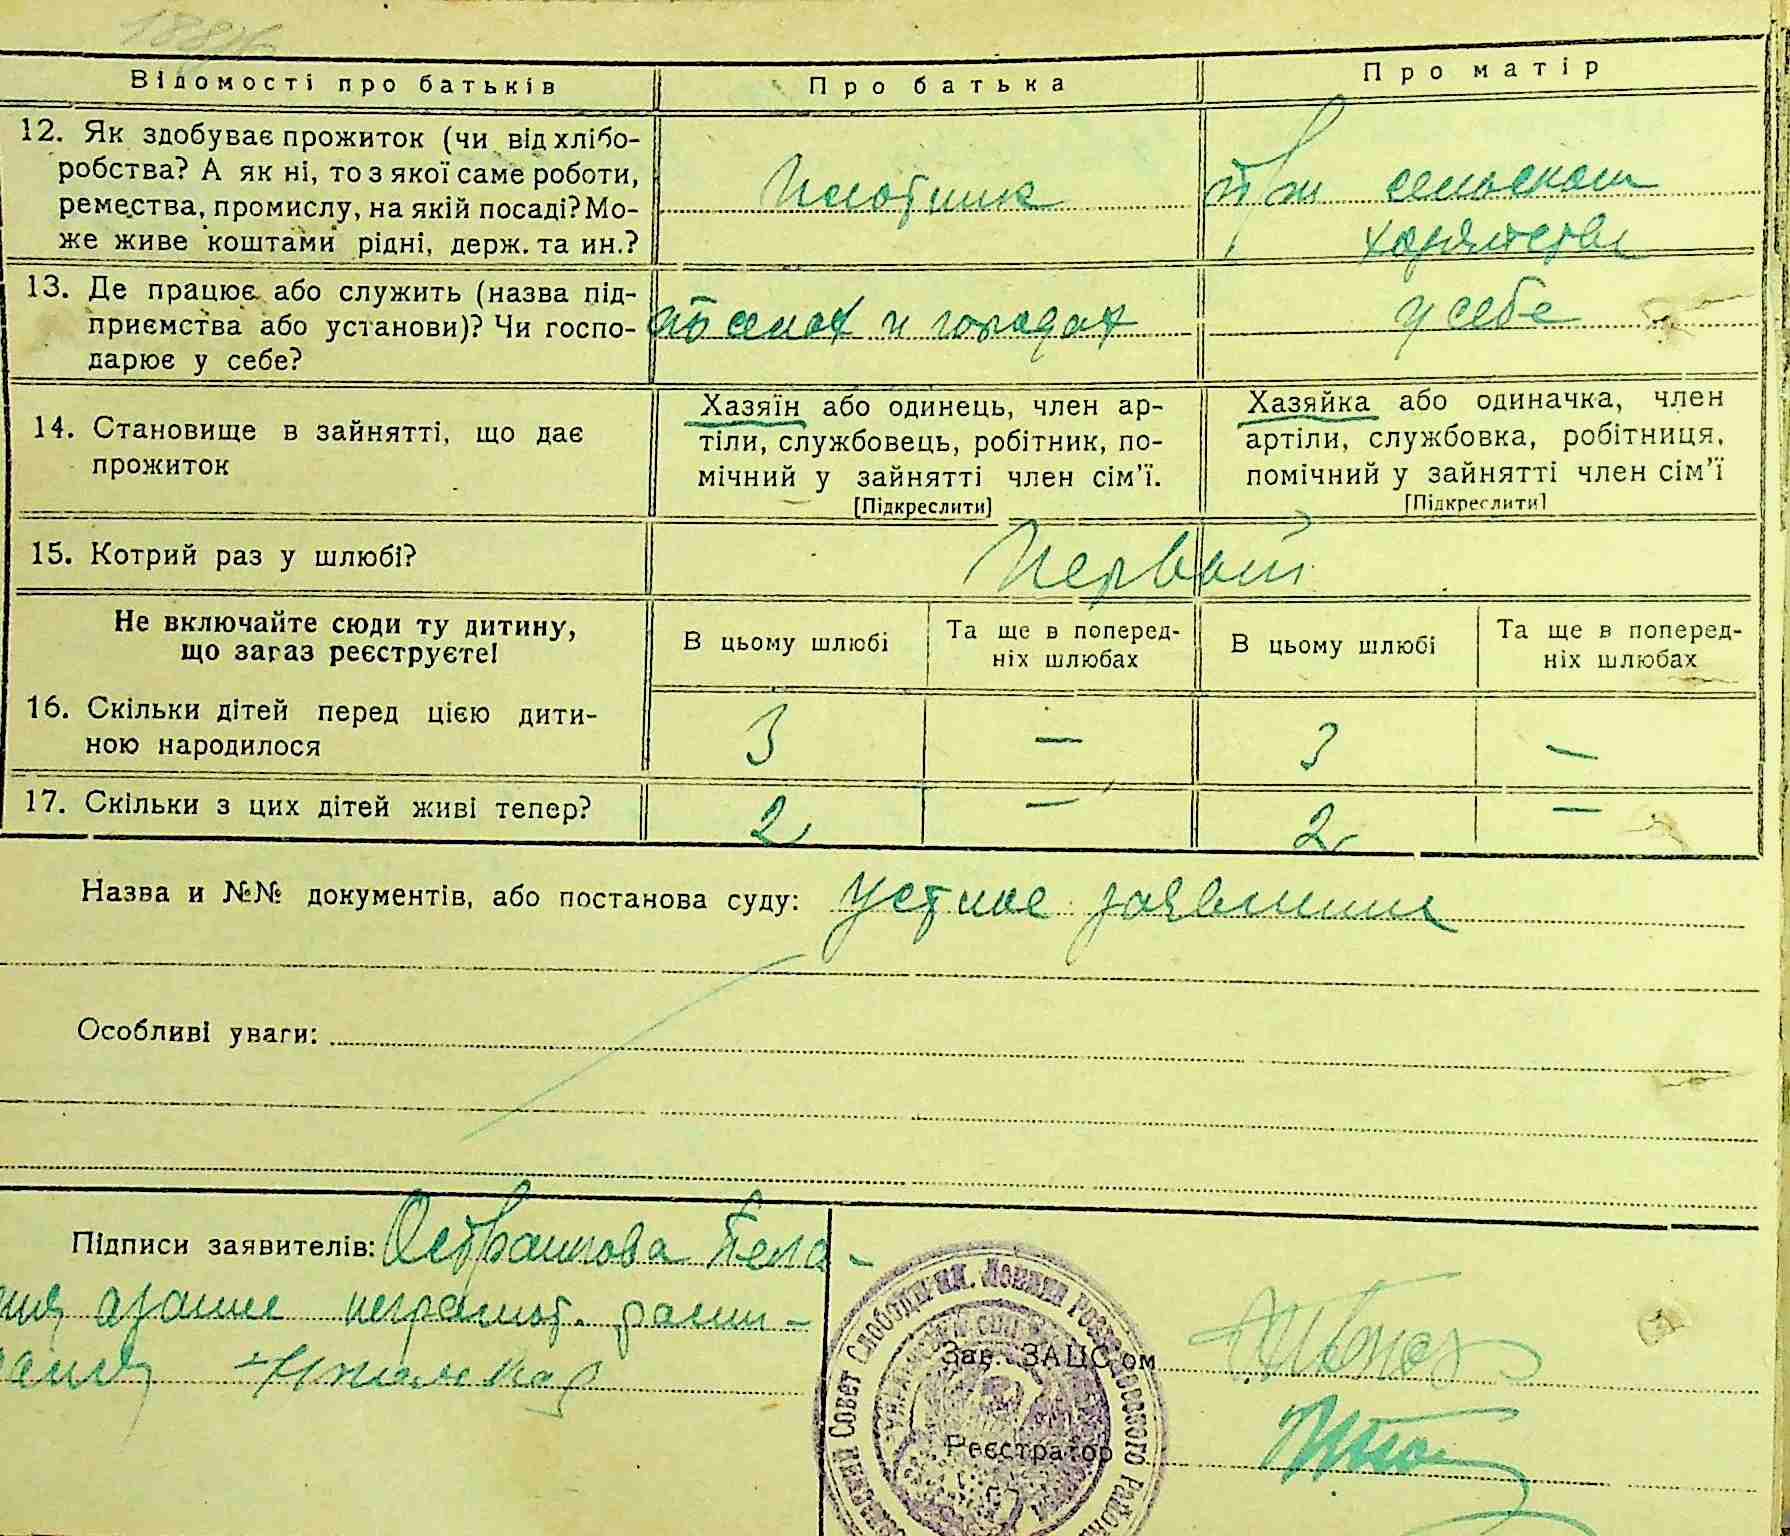 Відомості про батьків
Про батька
Про матір
12. Як здобуває прожиток (чи від хлібо-
робства? А як ні, то з якої саме роботи,
ремества, промислу, на якій посаді? Мо-
же живе коштами рідні, держ. та ин.?
Плотник
При сельском
хозяйстве
13. Де працює або служить (назва під-
приємства або установи)? Чи госпо-
дарює у себе?
по селах и городах
у себе
14. Становище в зайнятті, що дає
прожиток
Хазяїн або одинець, член ар-
тіли, службовець, робітник, по-
мічний у зайнятті член сім'ї.
[Підкреслити]
Хазяйка або одиначка, член
артіли, службовка, робітниця,
помічний у зайнятті член сім'ї
[Підкреслити]
15. Котрий раз у шлюбі?
Первый
Не включайте сюди ту дитину,
що зараз реєструєте!
В цьому шлюбі
Та ще в поперед-
ніх шлюбах
В цьому шлюбі
Та ще в поперед-
ніх шлюбах
16. Скільки дітей перед цією дити-
ною народилося
3 — 3 —
17. Скільки з цих дітей живі тепер?
2 — 2 —
Назва и №№ документів, або постанова суду: устное заявление
Особливі уваги:
Підписи заявителів: Пела-
неграмот.
Зав. ЗАЦС'ом
Реєстратор
Совет Слободзейск. Молдав Роздоровского Район